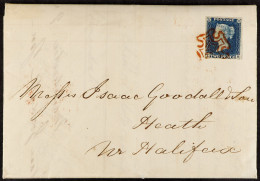 POSTAGE
Messrs Isaac Goodall & Son
Heath
Nr Halifax